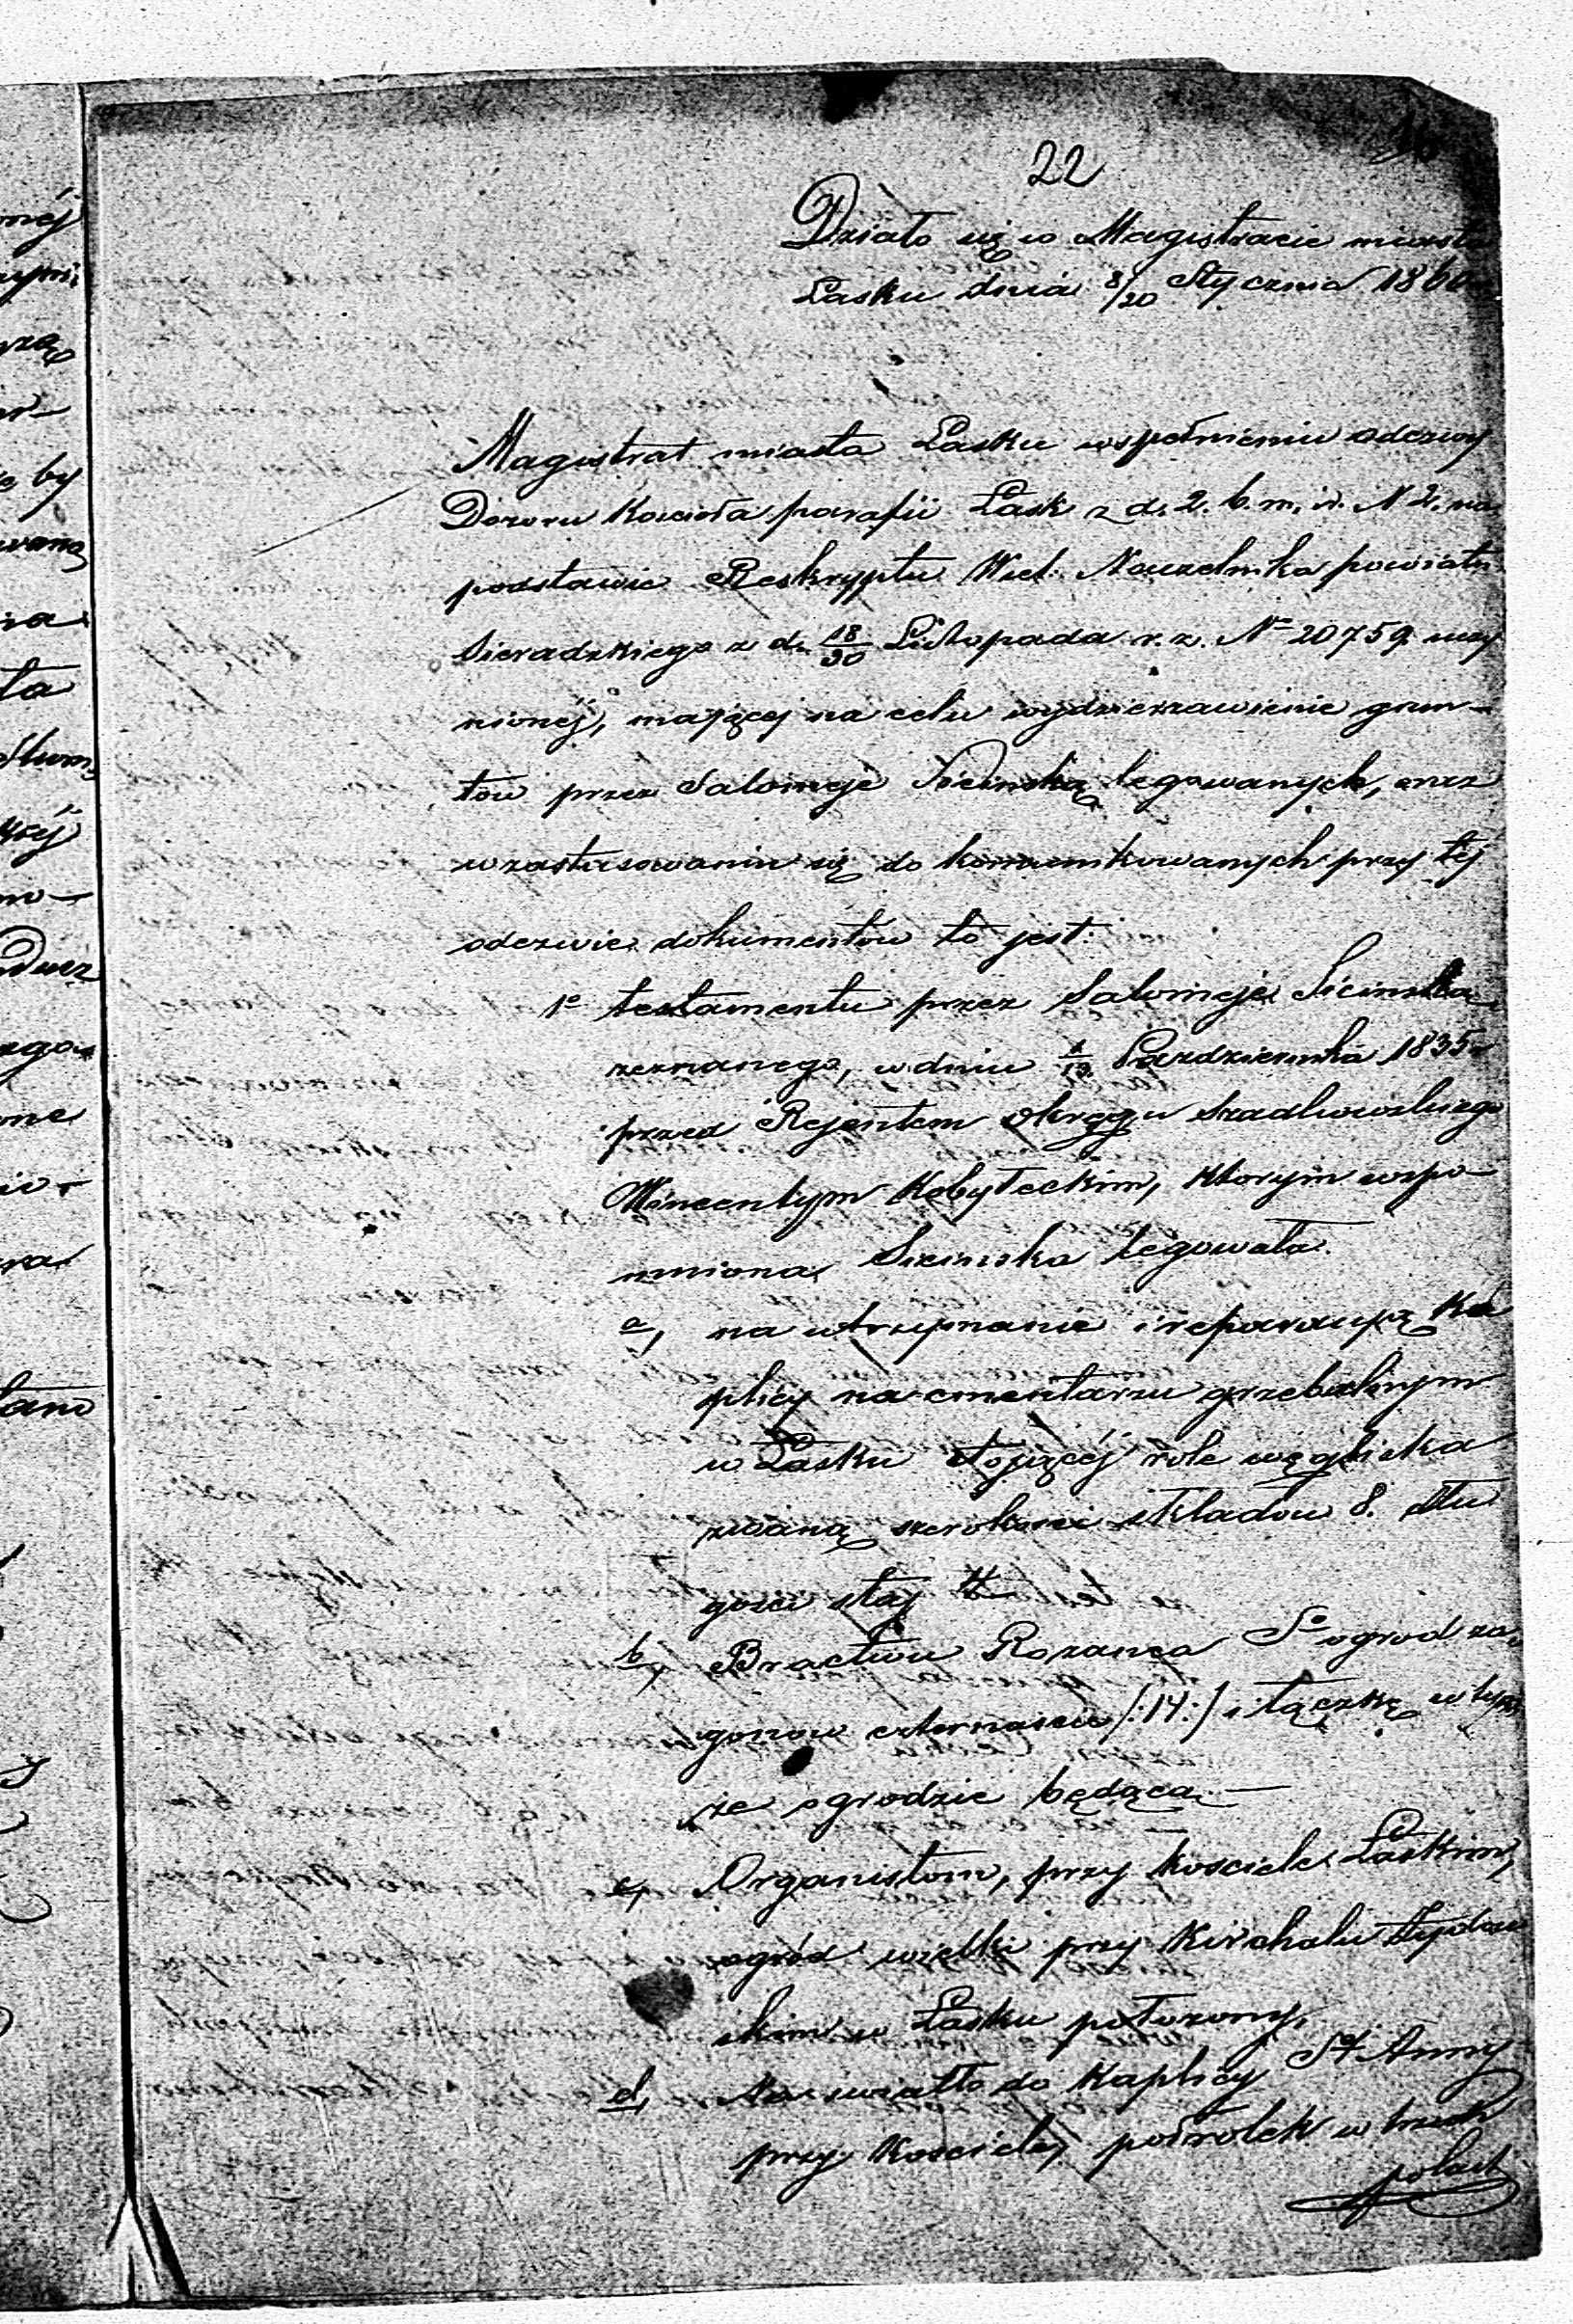 22
Działo się w Magistracie miasta
Łasku dnia 8/20 Stycznia 1860
Magistrat miasta Łasku wspełnieniu odezwy
Dozoru Kościoła parafii Łask z d. 2. b. m. i r. N 2. na
podstawie Reskryptu Wiel: Naczelnika powiatu
Sieradzkiego z d. 18/30 Listopada r. z. No 20759 uczy
nionej, mającej na celu wydzierzawienie grun-
tów przez Salomeje Sicinską legowanych, oraz
w zastosowaniu się do komunikowanych przy tej
odezwie dokumentów to jest:
1o testamentu przez Salomeje Sicinska
zeznanego, w dniu 1/13 Pazdziernika 1835 r
przed Rejentem Okręgu Szadkowskiego
Wincentym Kobyłeckim, ktorym wspo-
mniona Sicinska legowała.
a, na utrzymanie i reparacyją Ka
plicy na cmentarzu grzebalnym
w Łasku stojącéj role
zwaną szerokosci składów 8. dłu
gości staj
b, Bractwu Rozanca So ogrod za
gonow czternascie /:14:/ i łączkę w tym
ze ogrodzie będąca. —
c, Organistom, przy kosciele Łaskim,
ogród wielki przy Kirchalu Żydow
skim w Łasku położony,
d, Na swiatło do Kaplicy St Anny
przy Kosciele, połrolek w trzech
polach
onéj
by
waną
ia
ta
no-
ne
ra